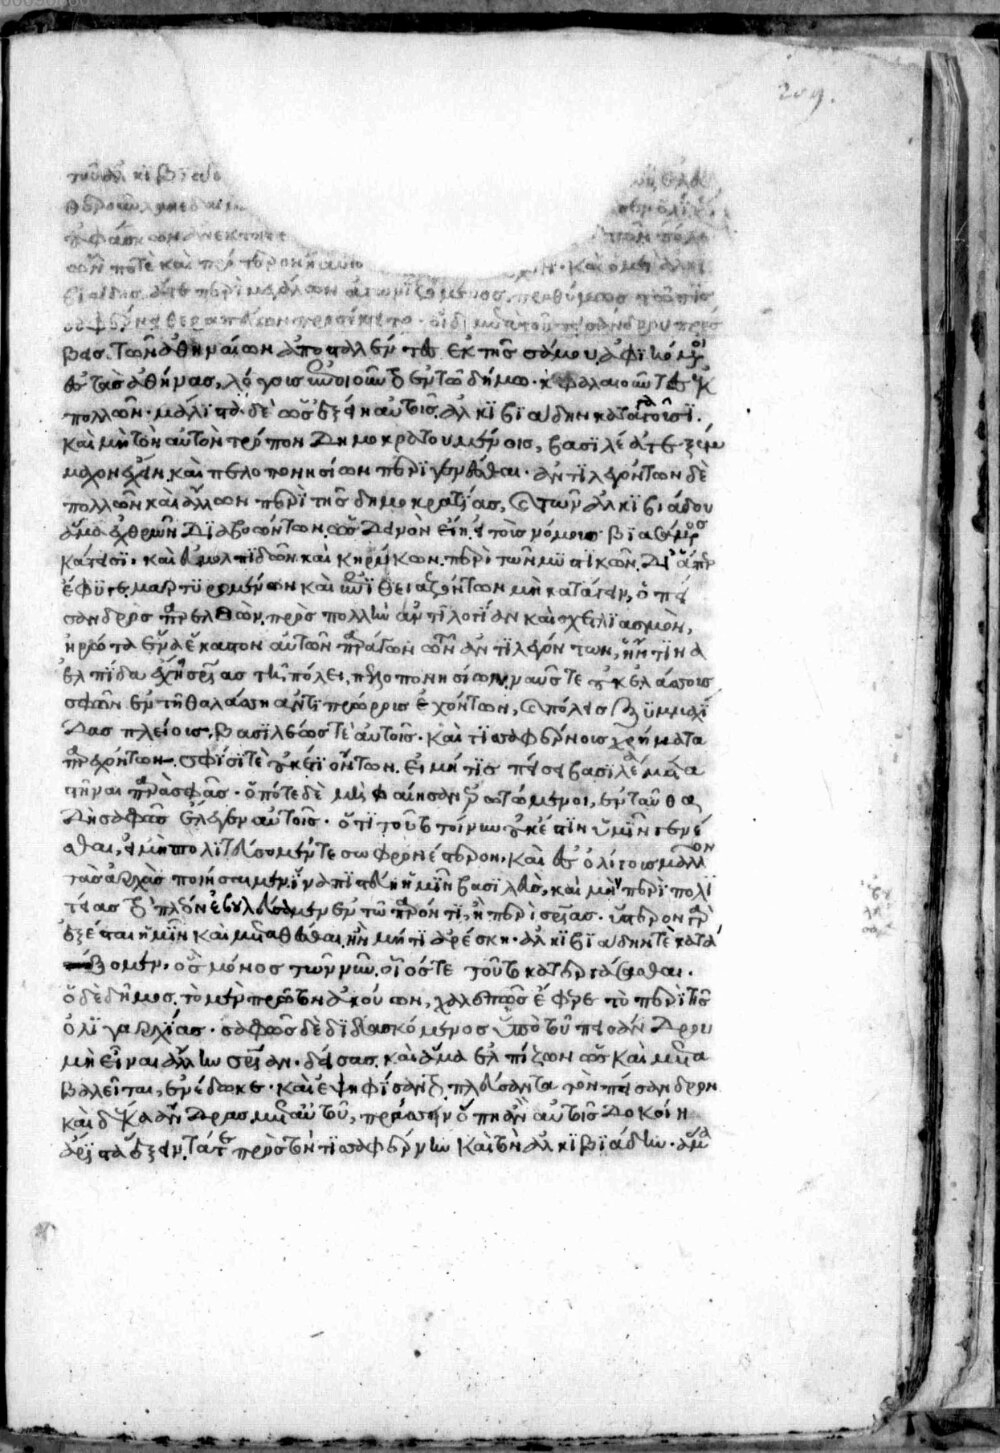 209.
τοῦ ἀλκιβιάδο
ὁ φάσκων ἀνεκτήσε
οὖν ποτὲ καὶ πρότερον ἢ αυτο καὶ ὁ μὲν ἀλκι
βιάδης ἅτε περὶ μεγάλων ἀγωνιζόμενος, προθύμως τὸν τισ
σαφέρνη θεραπεύων προσέκειτο. οἱ δὲ μετὰ τοῦ πεισάνδρου πρέσ
βεις τῶν ἀθηναίων ἀποσταλέντες ἐκ τῆς σάμου, ἀφικόμενοι
ἐς τὰς ἀθήνας, λόγους ἐποιοῦντο ἐν τῶ δήμω. κεφαλαιοῦντες ἐκ
πολλῶν. μάλιστα δὲ ὡς ἐξείη αὐτοῖς ἀλκιβιάδην καταγαγοῦσι.
καὶ μὴ τὸν αὐτὸν τρόπον δημοκρατουμένοις, βασιλέα τε ξύμ
μαχον ἔχειν, καὶ πελοποννησίων περιγενέσθαι. ἀντιλεγόντων δὲ
πολλῶν καὶ ἄλλων περὶ τῆς δημοκρατίας, καὶ τῶν ἀλκιβιάδου
ἅμα ἐχθρῶν διαβοώντων ὡς δεινὸν εἴη εἰ τοὺς νόμους βιασάμενος
κάτεισι. καὶ εὐμολπιδῶν καὶ κηρύκων περὶ τῶν μυστικῶν δι' ἅπερ
ἔφυγε μαρτυρομένων καὶ ἐπιθειαζόντων μὴ κατάγειν, ὁ πεί
σανδρος παρελθὼν πρὸς πολλὴν ἀντιλογίαν καὶ σχετλιασμὸν,
ἠρώτα ἕνα ἕκαστον αὐτῶν παράγων τῶν ἀντιλεγόντων, εἴ τινα
ἐλπίδα ἔχει σωτηρίας τῆ πόλει, πελοποννησίων ναῦς τε οὐκ ἐλάσσους
σφῶν ἐν τῆ θαλάσση ἀντιπρώρους ἐχόντων, καὶ πόλεις ξυμμαχί
δας πλείους, βασιλέως τὲ αὐτοῖς καὶ τισσαφέρνους χρήματα
παρεχόντων. σφίσι τὲ οὐκέτι ὄντων. εἰ μή τις πείσει βασιλέα μετα
στῆναι παρὰ σφᾶς. ὁπότε δὲ μὴ φαίησαν ἐρωτώμενοι, ἐνταῦθα
δὴ σαφῶς ἔλεγεν αὐτοῖς. ὅτι τοῦτο τοίνυν οὐκ ἔστιν ὑμῖν γενέ
σθαι, εἰ μὴ πολιτεύσομέν τε σωφρονέστερον. καὶ ἐς ὀλίγους μᾶλλον
τὰς ἀρχὰς ποιήσωμεν, ἵνα πιστεύη ἡμῖν βασιλεὺς, καὶ μὴ περὶ πολι
τείας τὸ πλέον βουλεύσωμεν ἐν τῶ παρόντι, ἢ περὶ σωτηρίας. ὕστερον γὰρ
ἐξέσται ἡμῖν καὶ μεταθέσθαι, ἢν μή τι ἀρέσκη. ἀλκιβιάδην τὲ κατά
ξομεν. ὃς μόνος τῶν νῦν οἷός τε τοῦτο κατεργάσασθαι.
ὁ δὲ δῆμος τὸ μὲν πρῶτον ἀκούων, χαλεπῶς ἔφερε τὸ περὶ τῆς
ὀλιγαρχίας. σαφῶς δὲ διδασκόμενος ὑπὸ τοῦ πεισάνδρου
μὴ εἶναι ἄλλην σωτηρίαν. δείσας καὶ ἅμα ἐλπίζων ὡς καὶ μετα
βαλεῖται, ἐνέδωκε. καὶ ἐψηφίσαντο πλεύσαντα τὸν πείσανδρον
καὶ δέκα ἄνδρας μετ' αὐτοῦ, πράσσειν ὅπη ἂν αὐτοῖς δοκοίη
ἄριστα ἕξειν τά τε πρὸς τὸν τισσαφέρνην καὶ τὸν ἀλκιβιάδην. ἅμα